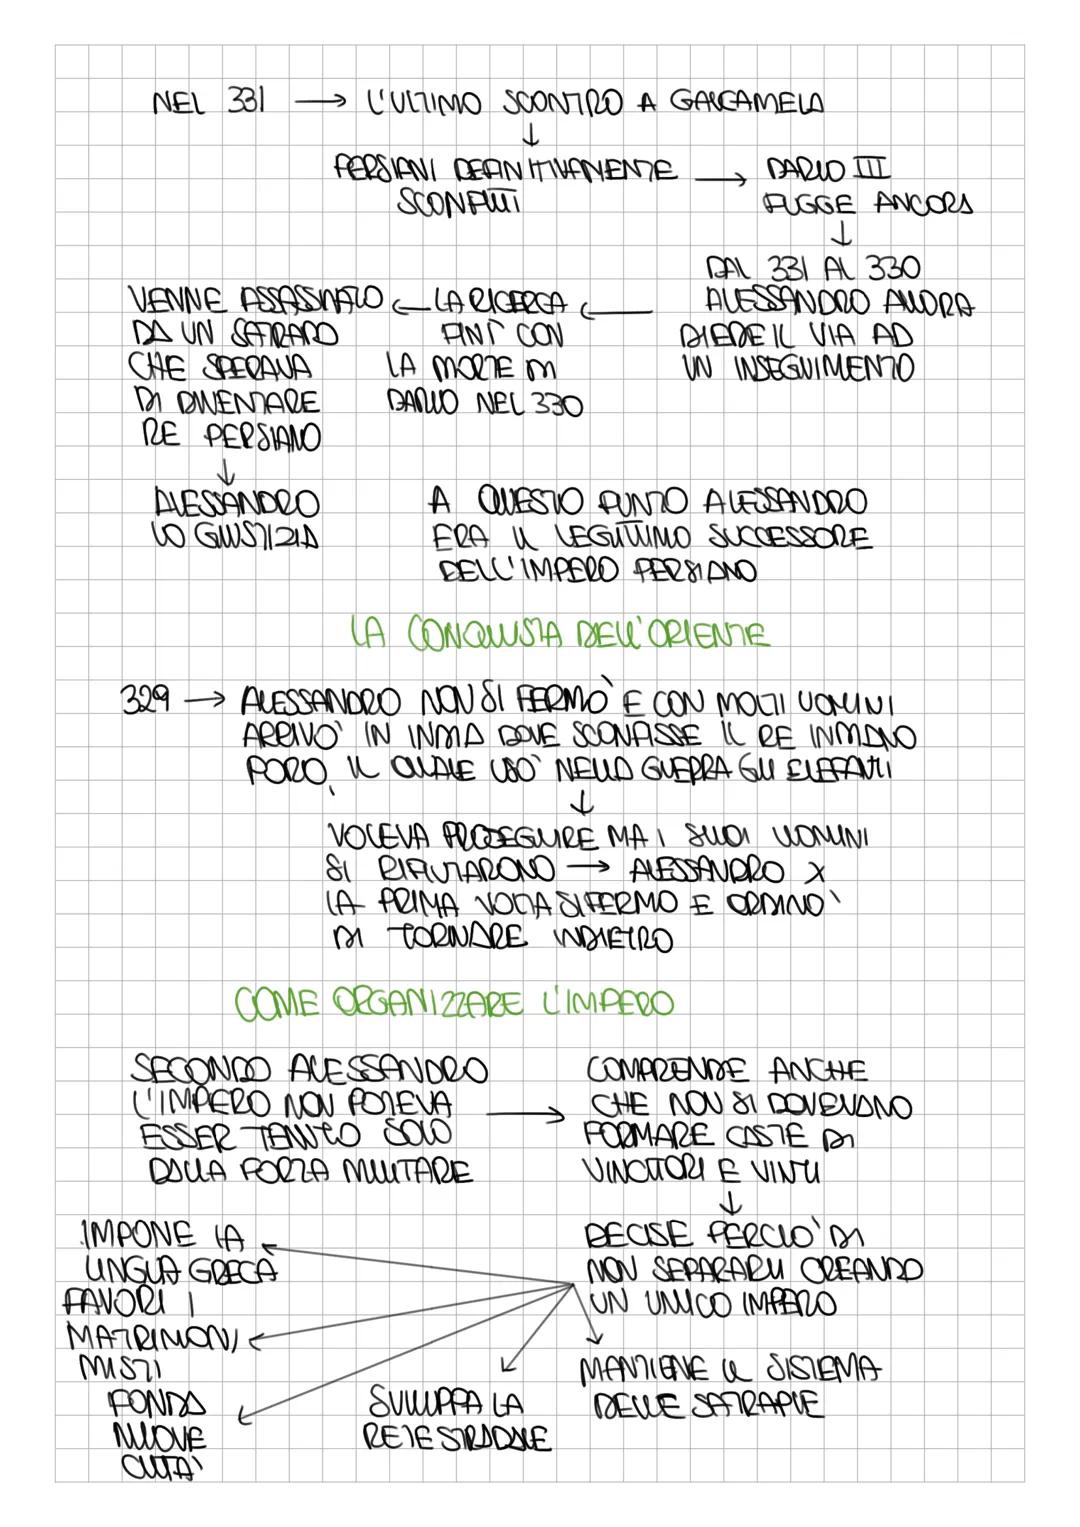 NEL 331 → L'ULTIMO SCONTRO A GAUGAMELA
↓
PERSIANI DEFINITIVAMENTE → DARIO III
SCONFITTI FUGGE ANCORA
↓
DAL 331 AL 330
ALESSANDRO ALLORA
DIEDE IL VIA AD
UN INSEGUIMENTO
← LA RICERCA
FINÌ CON
LA MORTE DI
DARIO NEL 330
← VENNE ASSASINATO
DA UN SATRAPO
CHE SPERAVA
DI DIVENTARE
RE PERSIANO
↓
ALESSANDRO
LO GIUSTIZIA
A QUESTO PUNTO ALESSANDRO
ERA IL LEGITTIMO SUCCESSORE
DELL'IMPERO PERSIANO
LA CONQUISTA DELL'ORIENTE
329 → ALESSANDRO NON SI FERMÒ E CON MOLTI UOMINI
ARRIVO' IN INDIA DOVE SCONFISSE IL RE INDIANO
PORO, IL QUALE USO' NELLA GUERRA GLI ELEFANTI
↓
VOLEVA PROSEGUIRE MA I SUOI UOMINI
SI RIFIUTARONO → ALESSANDRO X
LA PRIMA VOLTA SI FERMO E ORDINO'
DI TORNARE INDIETRO
COME ORGANIZZARE L'IMPERO
SECONDO ALESSANDRO
L'IMPERO NON POTEVA
ESSER TENUTO SOLO
DALLA FORZA MILITARE
→ COMPRENDE ANCHE
CHE NON SI DOVEVANO
FORMARE CASTE DI
VINCITORI E VINTI
↓
DECISE PERCIO' DI
NON SEPARARLI CREANDO
UN UNICO IMPERO
IMPONE LA
LINGUA GRECA
FAVORI I
MATRIMONI
MISTI
FONDA
NUOVE
CITTA'
SVILUPPA LA
RETE STRADALE
MANTIENE IL SISTEMA
DELLE SATRAPIE